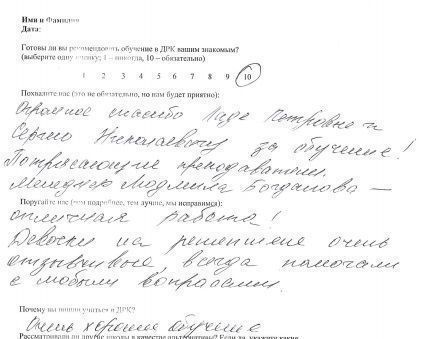 Имя и Фамилия
Дата:
Готовы ли вы рекомендовать обучение в ДРК вашим знакомым?
(выберите одну оценку; 1 – никогда, 10 – обязательно)
1 2 3 4 5 6 7 8 9 10
Похвалите нас (это не обязательно, но нам будет приятно):
Огромное спасибо Ладе Петровне и
Сергею Николаевичу за обучение!
Потрясающие преподаватели.
Менеджер Людмила Богданова –
Поругайте нас (чем подробнее, тем лучше, мы исправимся):
отличная работа!
Девочки на решепшене очень
отзывчивые, всегда помогали
с любыми вопросами.
Почему вы пошли учиться в ДРК?
Очень хорошее обучение
Рассматривали ли другие школы в качестве альтернативы? Если да, укажите какие